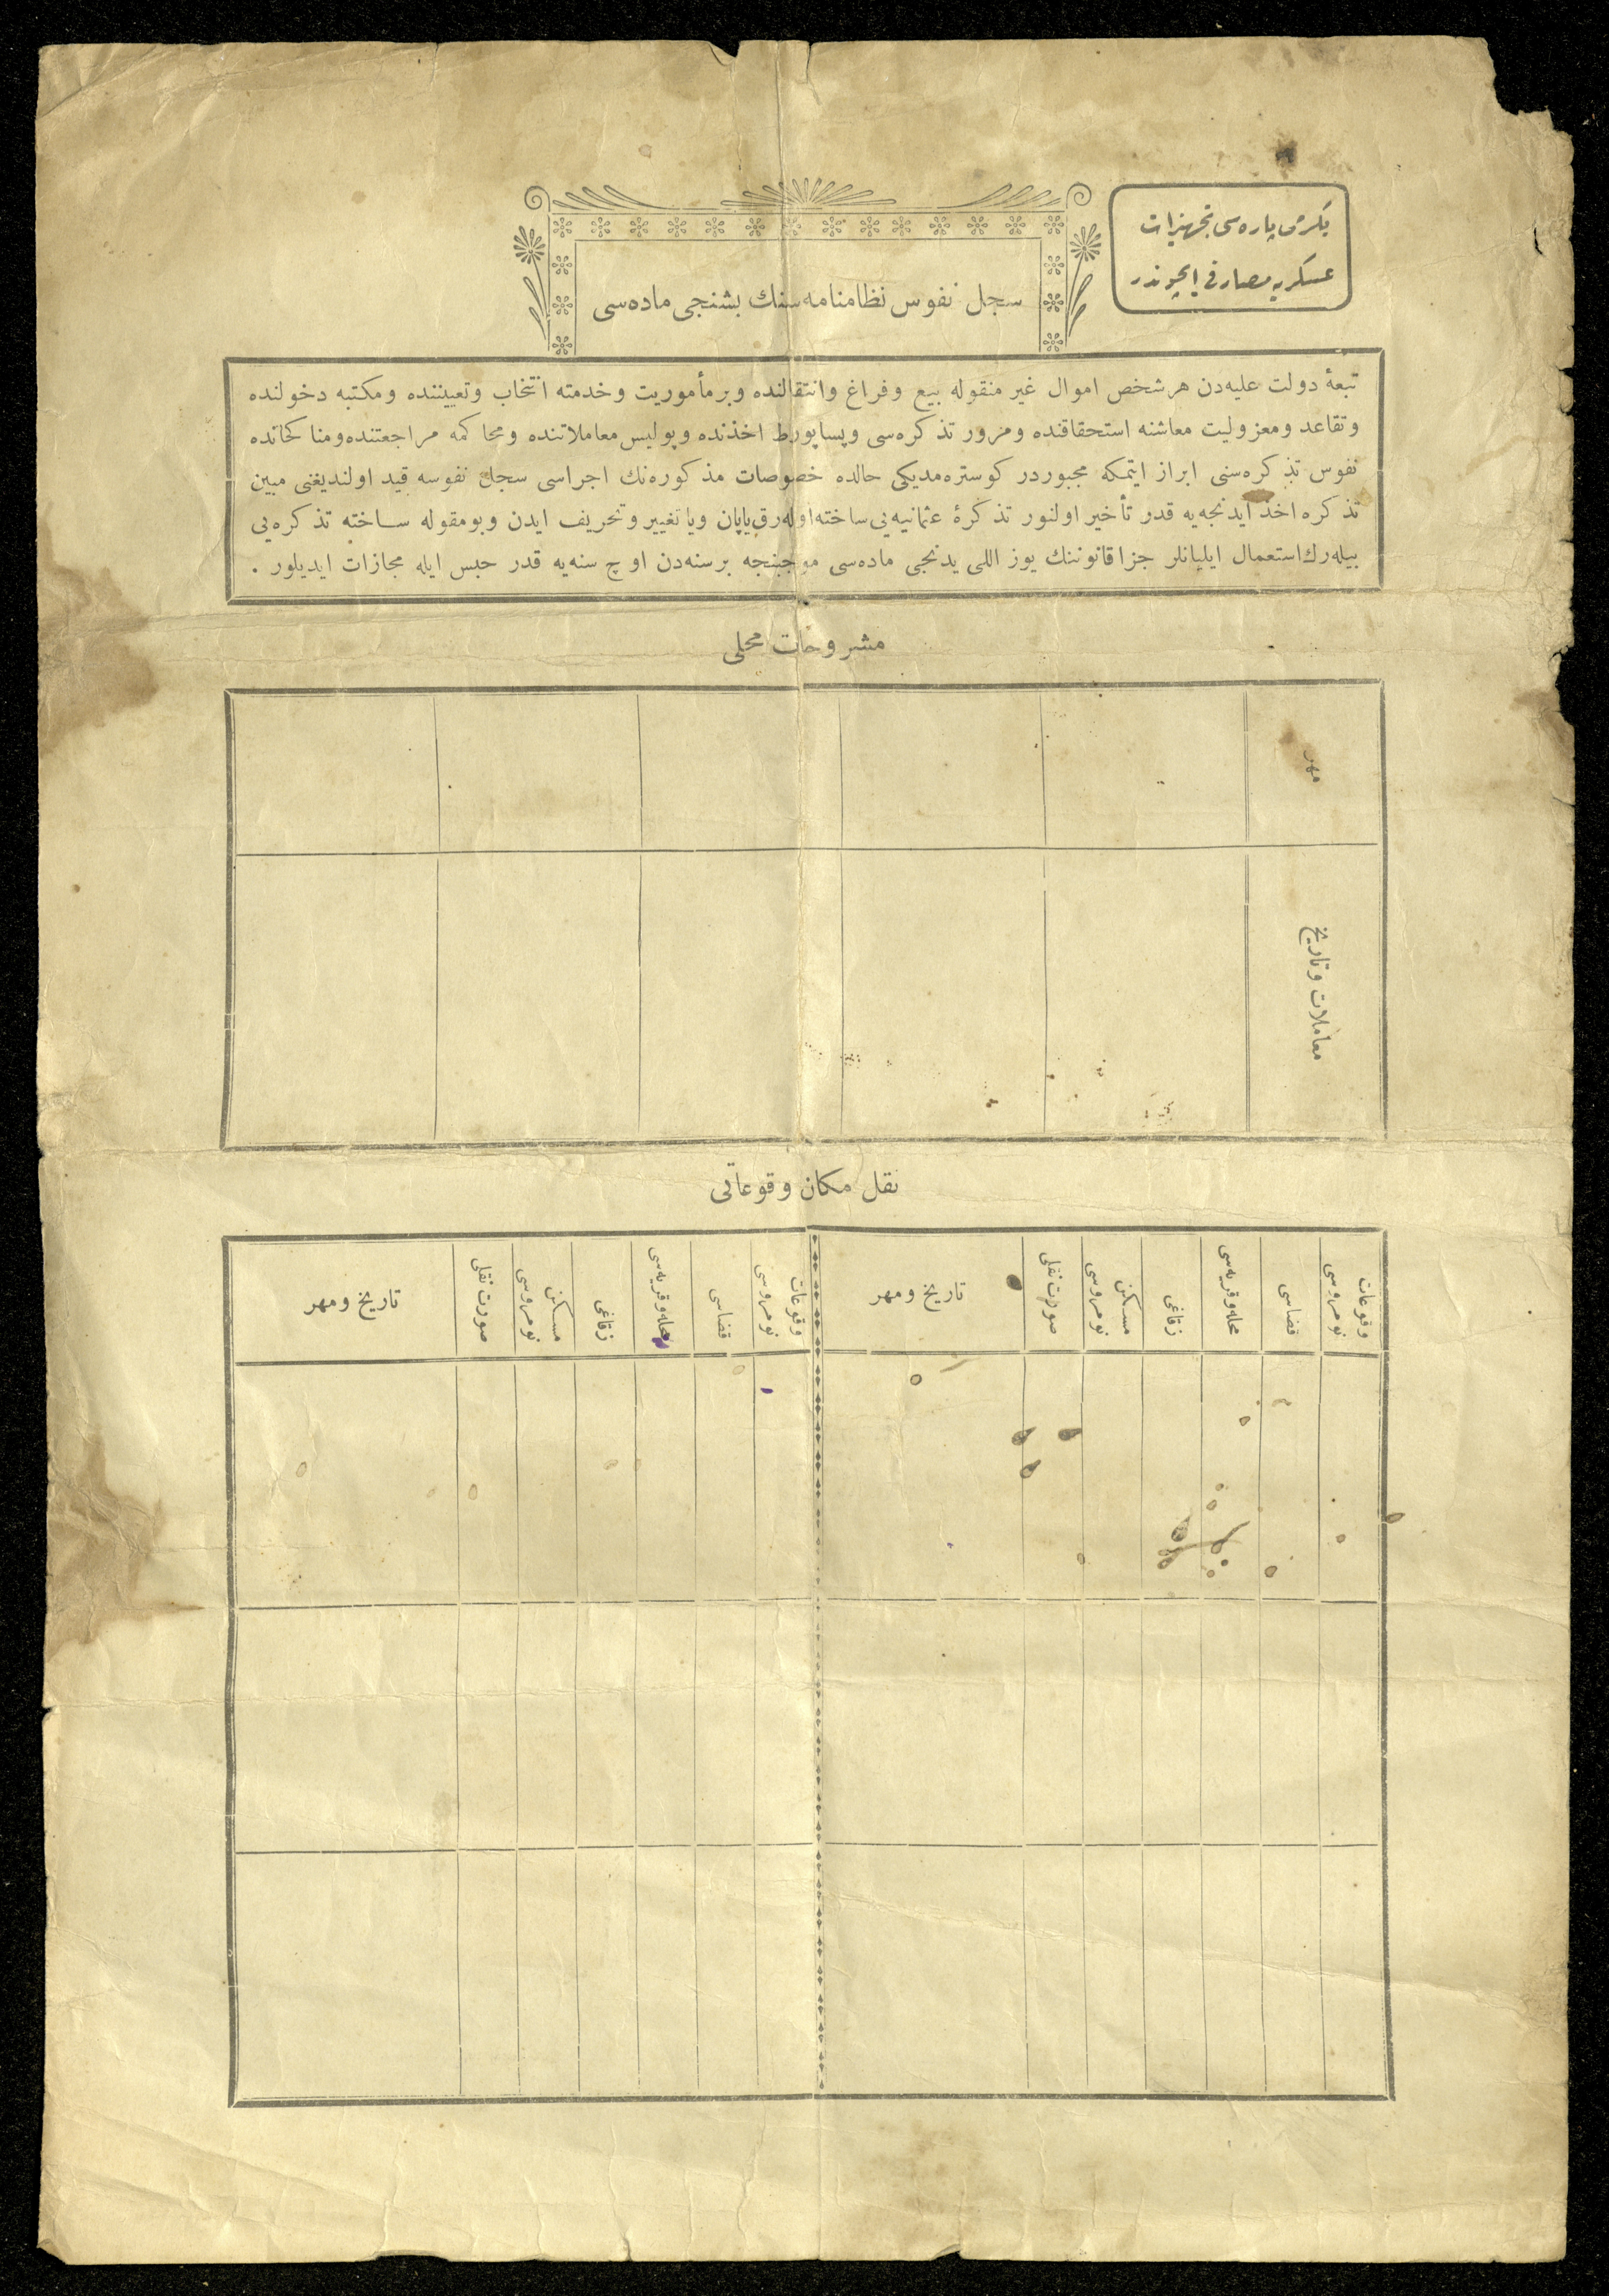 یکرمی پاره‌سی تجهیزات
عسکریه مصارفی ایچوندر
سجل نفوس نظامنامه‌سنك بشنجی ماده‌سی
تبعهٔ دولت علیه‌دن هر شخص اموال غیر منقوله بیع وفراغ وانتقالنده وبر مأموریت وخدمته انتخاب وتعییننده ومکتبه دخولنده
وتقاعد ومعزولیت معاشنه استحقاقنده ومرور تذکره‌سی وپساپورط اخذنده وپولیس معاملاتنده ومحاکمه مراجعتنده ومناکحاتده
نفوس تذکره‌سنی ابراز ایتمکه مجبوردر کوستره‌مدیکی حالده خصوصات مذکوره‌نك اجراسی سجل نفوسه قید اولندیغنی مبین
تذکره اخذ ایدنجه‌یه قدر تأخیر اولنور تذکرهٔ عثمانیه‌یی ساخته اوله‌رق یاپان ویا تغییر وتحریف ایدن وبومقوله ساخته تذکره‌یی
بیله‌رك استعمال ایلیانلر جزا قانوننك یوز اللی یدنجی ماده‌سی موجبنجه بر سنه‌دن اوچ سنه‌یه قدر حبس ایله مجازات ایدیلور .
مشروحات محلی
مهر
معاملات وتاریخ
نقل مکان وقوعاتی
وقوعات نومروسی
قضاسی
محله وقریه‌سی
زقاغی
مسکن نومروسی
صورت نقلی
تاریخ ومهر
وقوعات نومروسی
قضاسی
محله وقریه‌سی
زقاغی
مسکن نومروسی
صورت نقلی
تاریخ ومهر